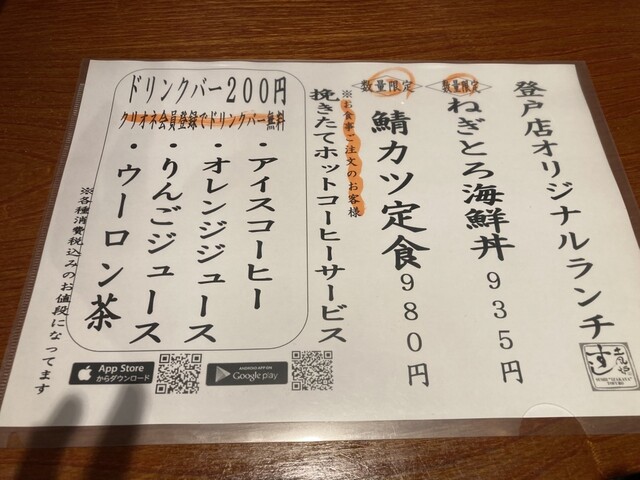 登戸店オリジナルランチ
数量限定
ねぎとろ海鮮丼 935円
数量限定
鯖カツ定食 980円
※お食事ご注文のお客様
挽きたてホットコーヒーサービス
ドリンクバー200円
クリオネ会員登録でドリンクバー無料
・アイスコーヒー
・オレンジジュース
・りんごジュース
・ウーロン茶
※各種消費税込みのお値段になってます
App Store
からダウンロード
ANDROID APP ON
Google play